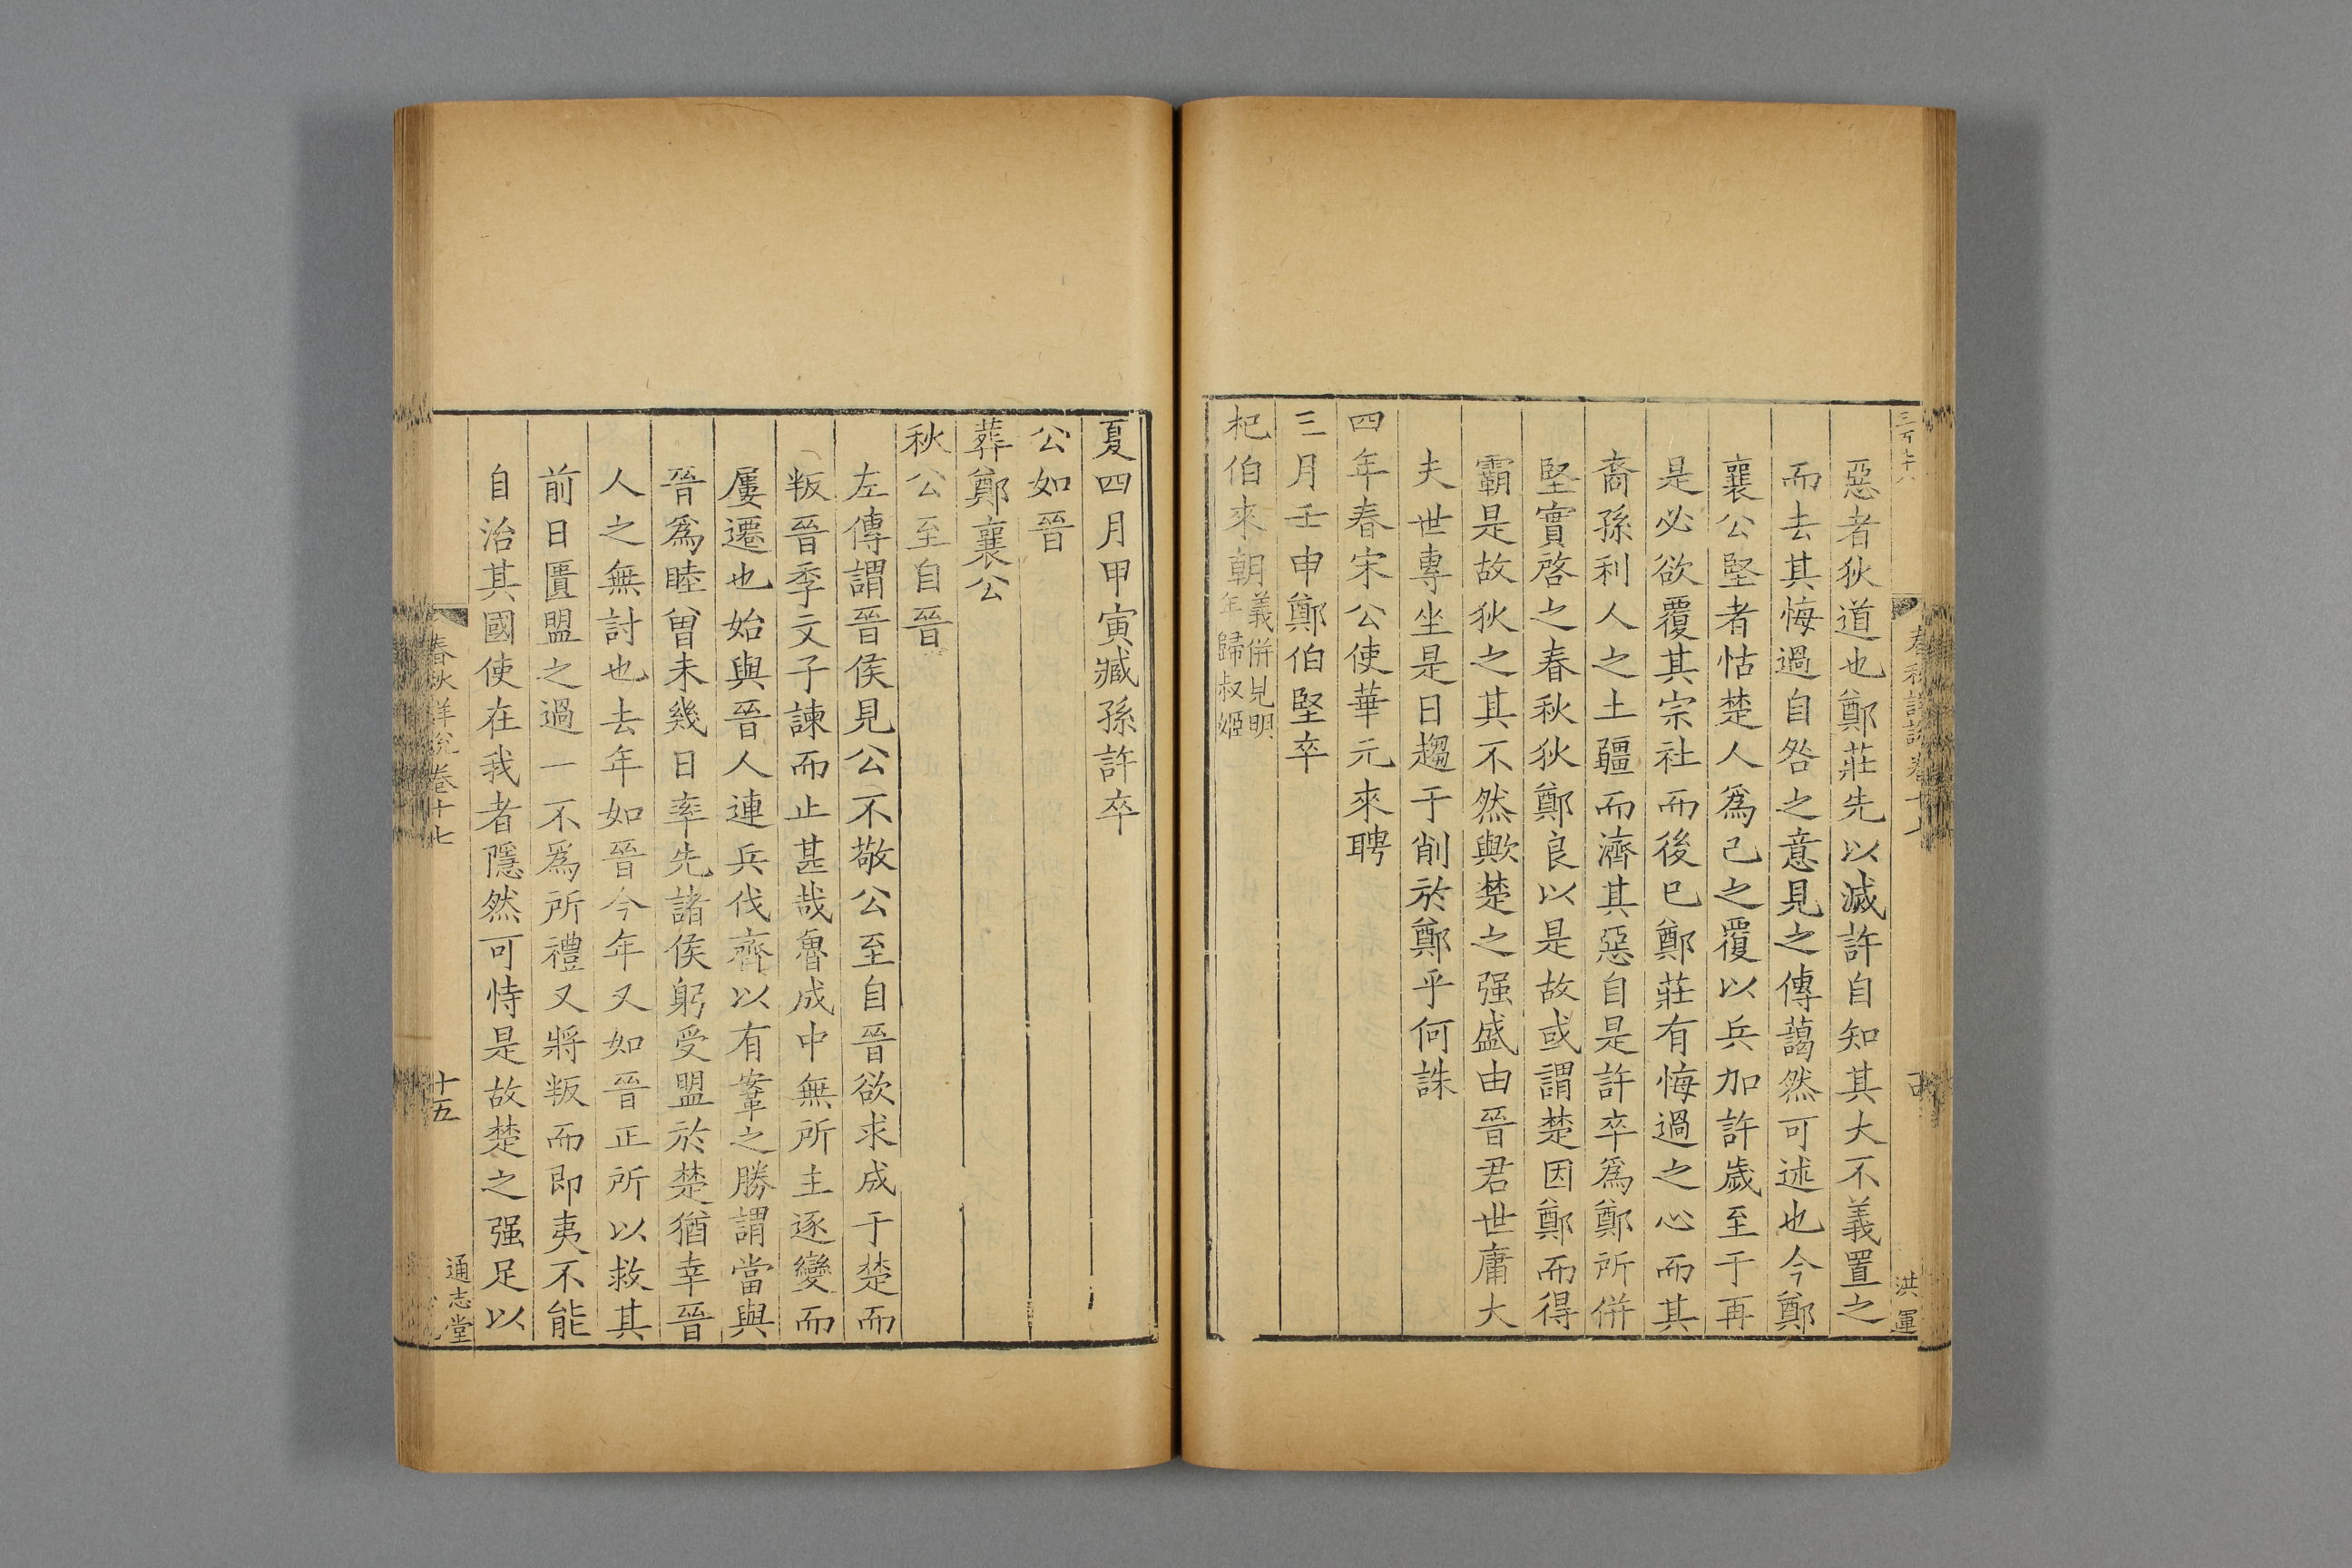 惡者狄道也鄭莊先以滅許自知其大不義置之
而去其悔過自咎之意見之傳藹然可述也今鄭
襄公堅者怙楚人爲己之覆以兵加許歲至于再
是必欲覆其宗社而後已鄭莊有悔過之心而其
裔孫利人之土疆而濟其惡自是許卒爲鄭所併
堅實啓之春秋狄鄭良以是故或謂楚因鄭而得
霸是故狄之其不然歟楚之强盛由晉君世庸大
夫世專坐是日趨于削於鄭乎何誅
四年春宋公使華元來聘
三月壬申鄭伯堅卒
杞伯來朝義併見明
年歸叔姬
洪運
夏四月甲寅臧孫許卒
公如晉
葬鄭襄公
秋公至自晉
左傳謂晉侯見公不敬公至自晉欲求成于楚而
叛晉季文子諫而止甚哉魯成中無所主逐變而
屢遷也始與晉人連兵伐齊以有鞌之勝謂當與
晉爲睦曾未幾日率先諸侯躬受盟於楚猶幸晉
人之無討也去年如晉今年又如晉正所以救其
前日匱盟之過一不爲所禮又將叛而即夷不能
自治其國使在我者隱然可恃是故楚之强足以
春秋詳說卷十七
十五
通志堂